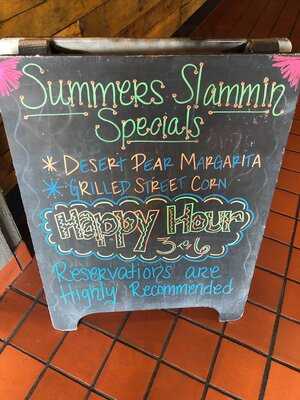 Summers Slammin
Specials
* Desert Pear Margarita
* Grilled Street Corn
Happy Hour
3-6
Reservations are
Highly Recommended